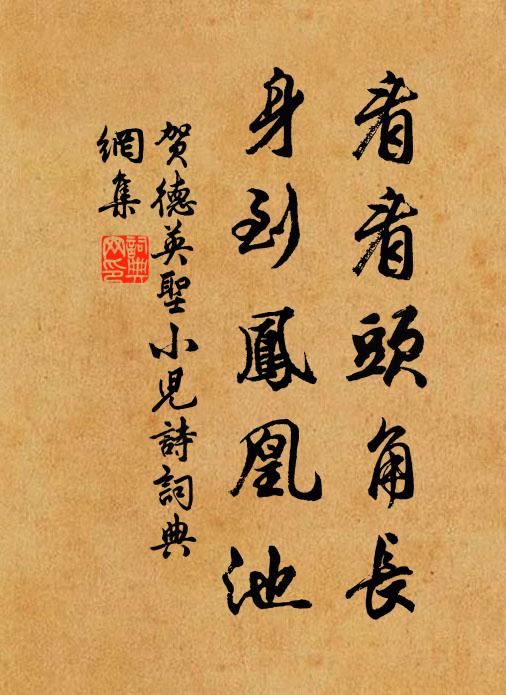 看看頭角長
身到鳳凰池
賀德英聖小児詩詞典
網集
詞典網印